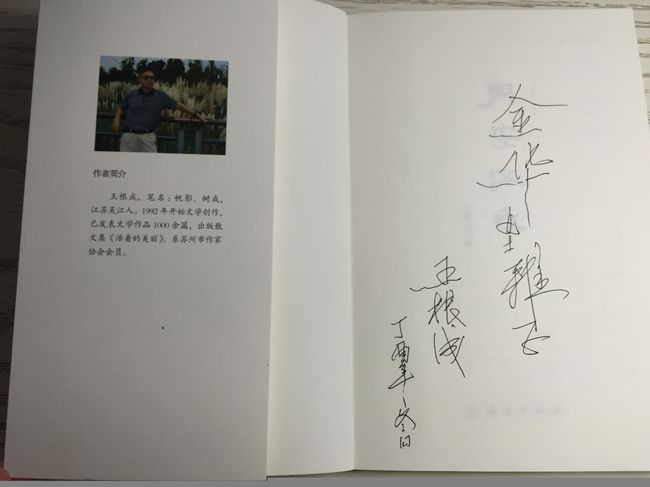 作者简介
王根成,笔名:帆影、树成,
江苏吴江人。1992年开始文学创作,
已发表文学作品1000余篇,出版散
文集《活着的美丽》。系苏州市作家
协会会员。
金华
雅正
王根成
丁酉年冬日